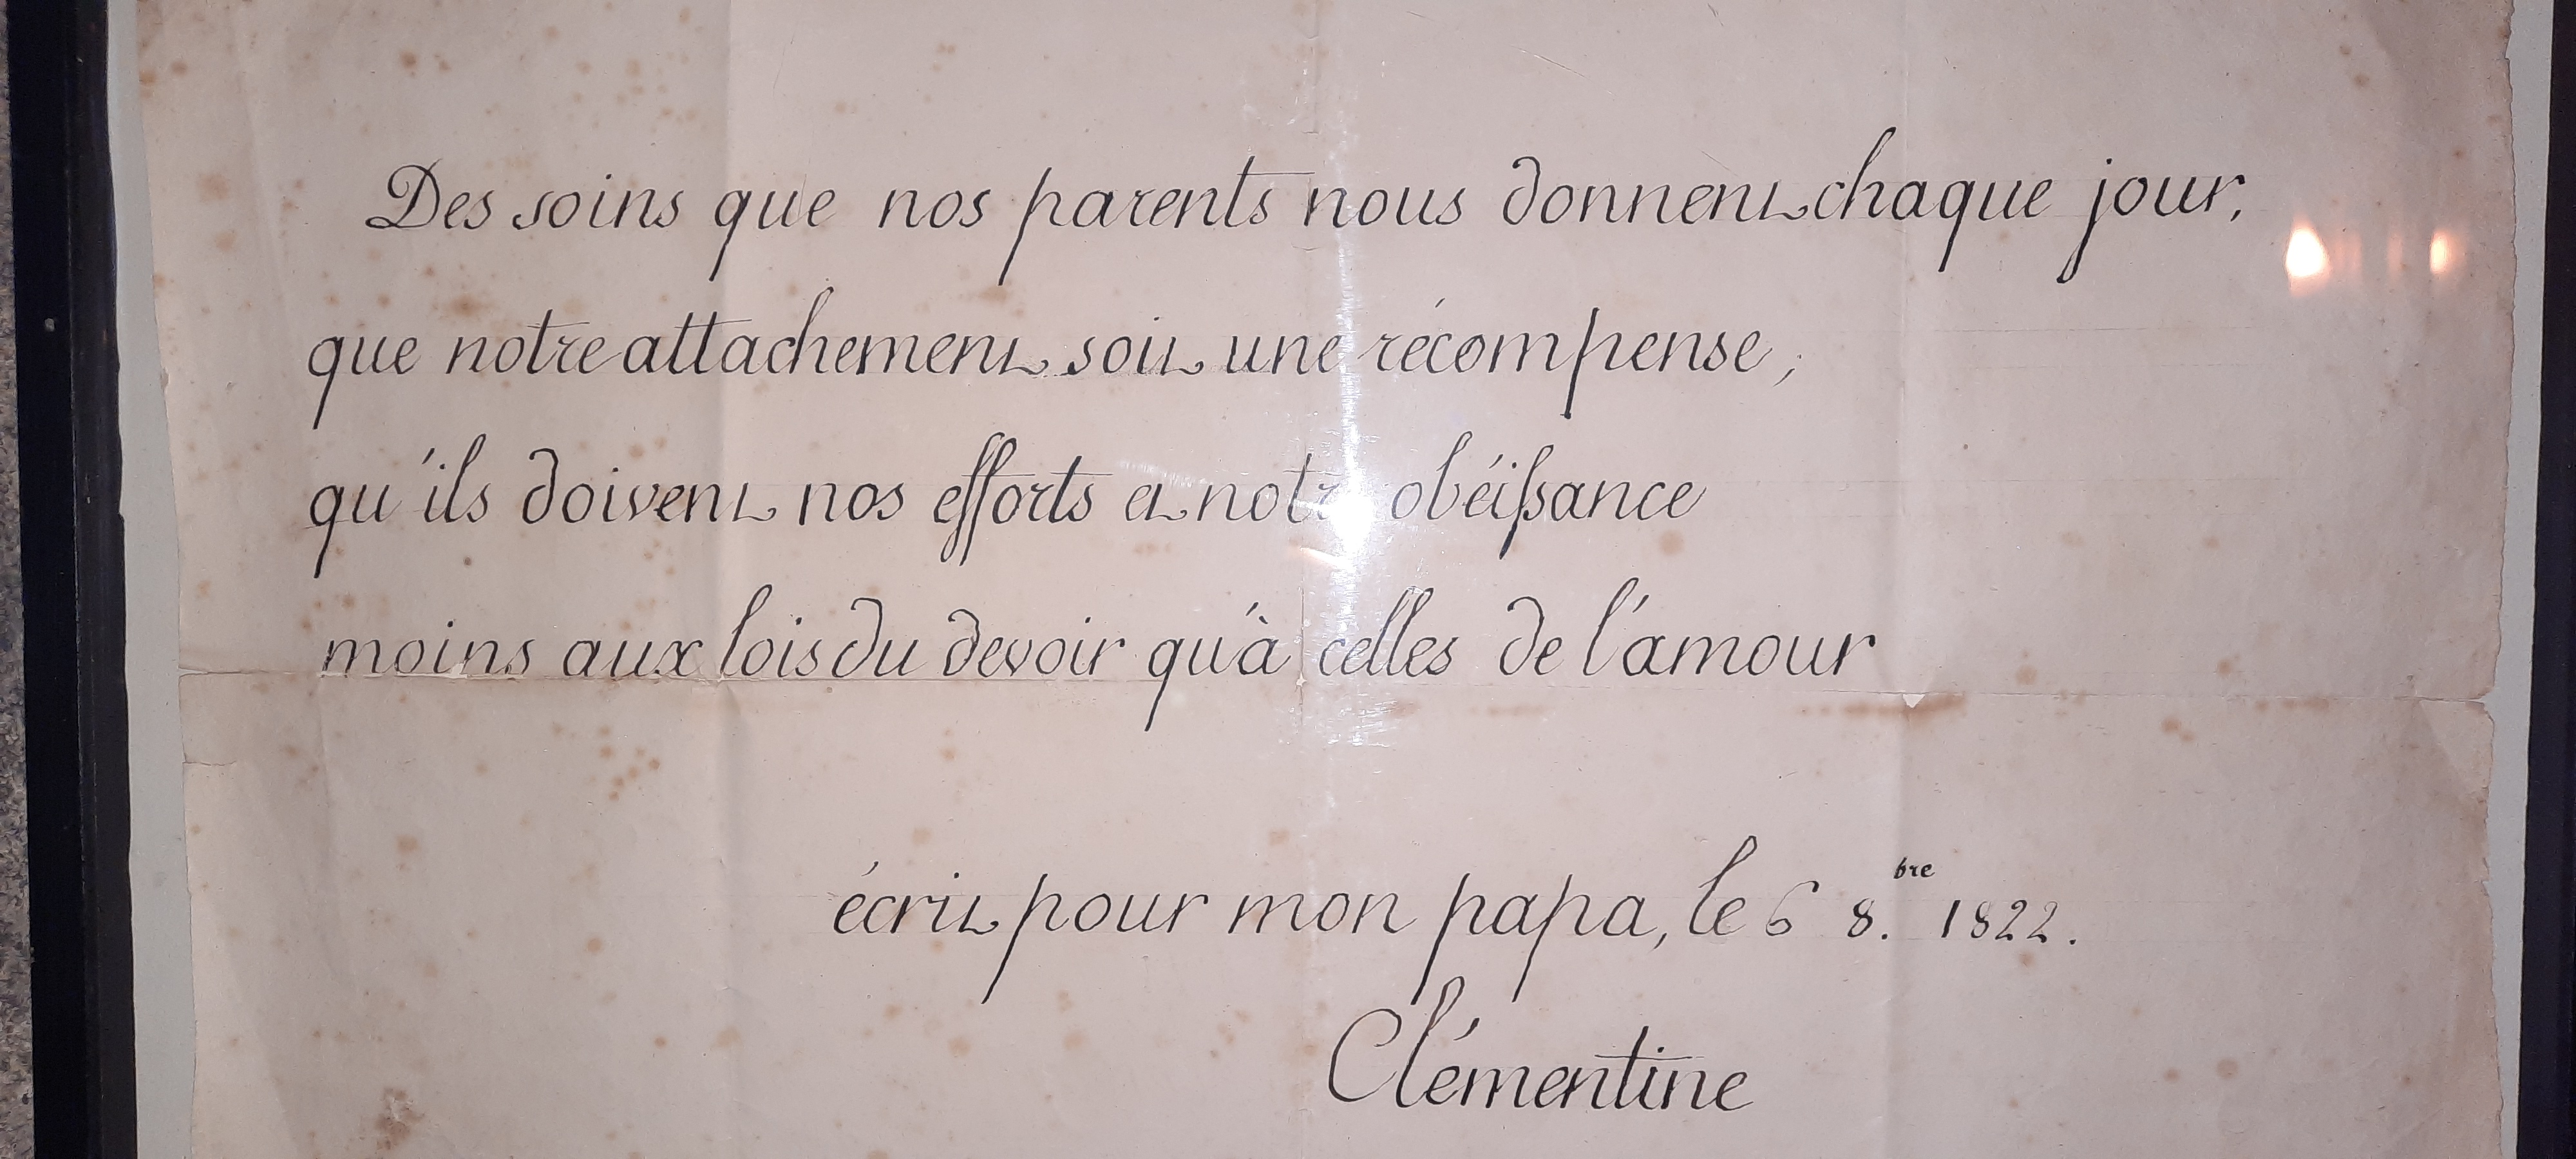 Des soins que nos parents nous donnent chaque jour,
que notre attachement soit une récompense,
qu'ils doivent nos efforts et notre obéissance
moins aux lois du devoir qu'à celles de l'amour
écrit pour mon papa, le 6 8.bre 1822.
Clémentine